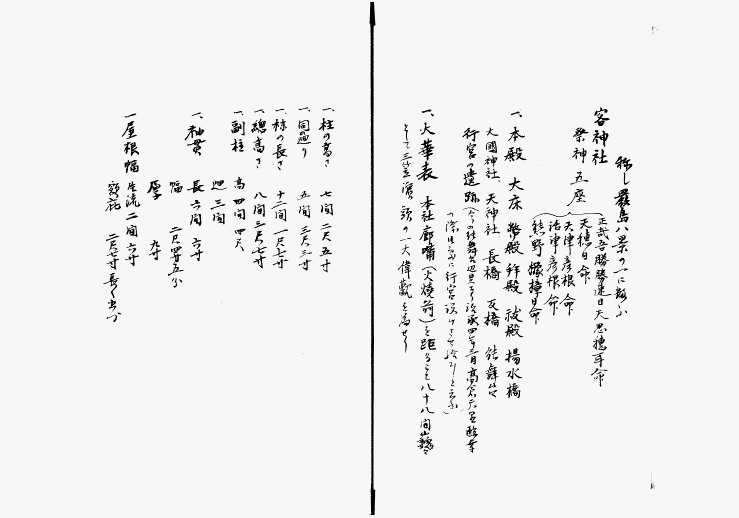 称し嚴島八景の一に数ふ
客神社
祭神五座
正哉吾勝勝速日天忍穗耳命
天穗日命
天津彦根命
活津彦根命
熊野櫲樟日命
一、本殿 大床 幣殿 拜殿 祓殿 揚水橋
大國神社、天神社 長橋 反橋 能舞台
行宮の遺跡 高倉上皇
の際此處に行宮設けさせ給ひしと云ふ
一、大華表 本社廊嘴（火燒前）を距ること八十八間
として三笠濱頭の一大偉觀を為せり
一、柱の高さ 七間二尺五寸
一、同廻り 五間三尺三寸
一、棟の長さ 十二間一尺七寸
一、總高さ 八間三尺七寸
一、副柱 高四間四尺
廻三間
一、袖貫 長六間六寸
幅 二尺四寸五分
厚 九寸
一屋根幅 生流二間六寸
額庇 二尺七寸長く出づ